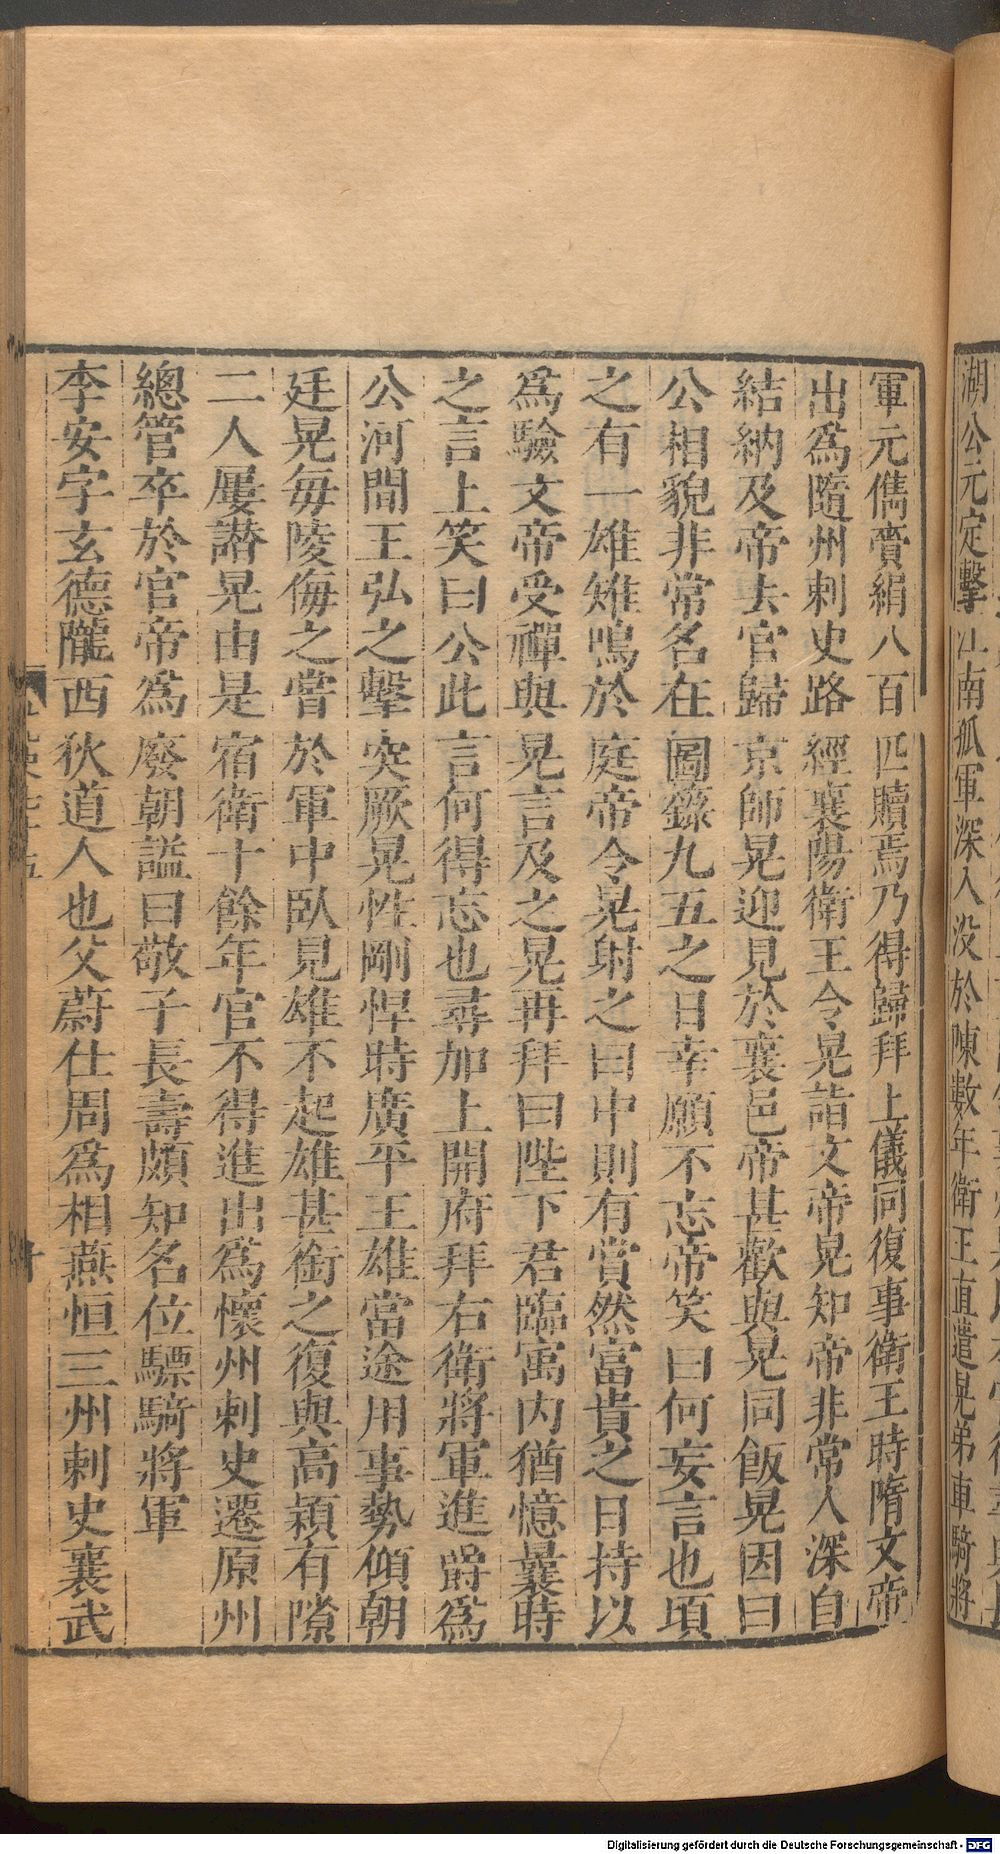 湖公元定擊江南孤軍深入没於陳數年衛王直遣晃弟車騎將
軍元儁賫絹八百匹贖焉乃得歸拜上儀同復事衛王時隋文帝
出爲隨州刺史路經襄陽衛王令晃詣文帝晃知帝非常人深自
結納及帝去官歸京師晃迎見於襄邑帝甚歡與晃同飯晃因曰
公相貌非常名在圖籙九五之日幸願不忘帝笑曰何妄言也頃
之有一雄雉鳴於庭帝令晃射之曰中則有賞然富貴之日持以
爲驗文帝受禪與晃言及之晃再拜曰陛下君臨㝢内猶憶曩時
之言上笑曰公此言何得忘也尋加上開府拜右衛將軍進爵爲
公河間王弘之擊突厥晃性剛悍時廣平王雄當途用事勢傾朝
廷晃每陵侮之嘗於軍中臥見雄不起雄甚銜之復與高熲有隙
二人屢譖晃由是宿衛十餘年官不得進出爲懷州刺史遷原州
總管卒於官帝爲廢朝謚曰敬子長壽頗知名位驃騎將軍
李安字玄德隴西狄道人也父蔚仕周爲相燕恒三州刺史襄武
Digitalisierung gefördert durch die Deutsche Forschungsgemeinschaft - DFG